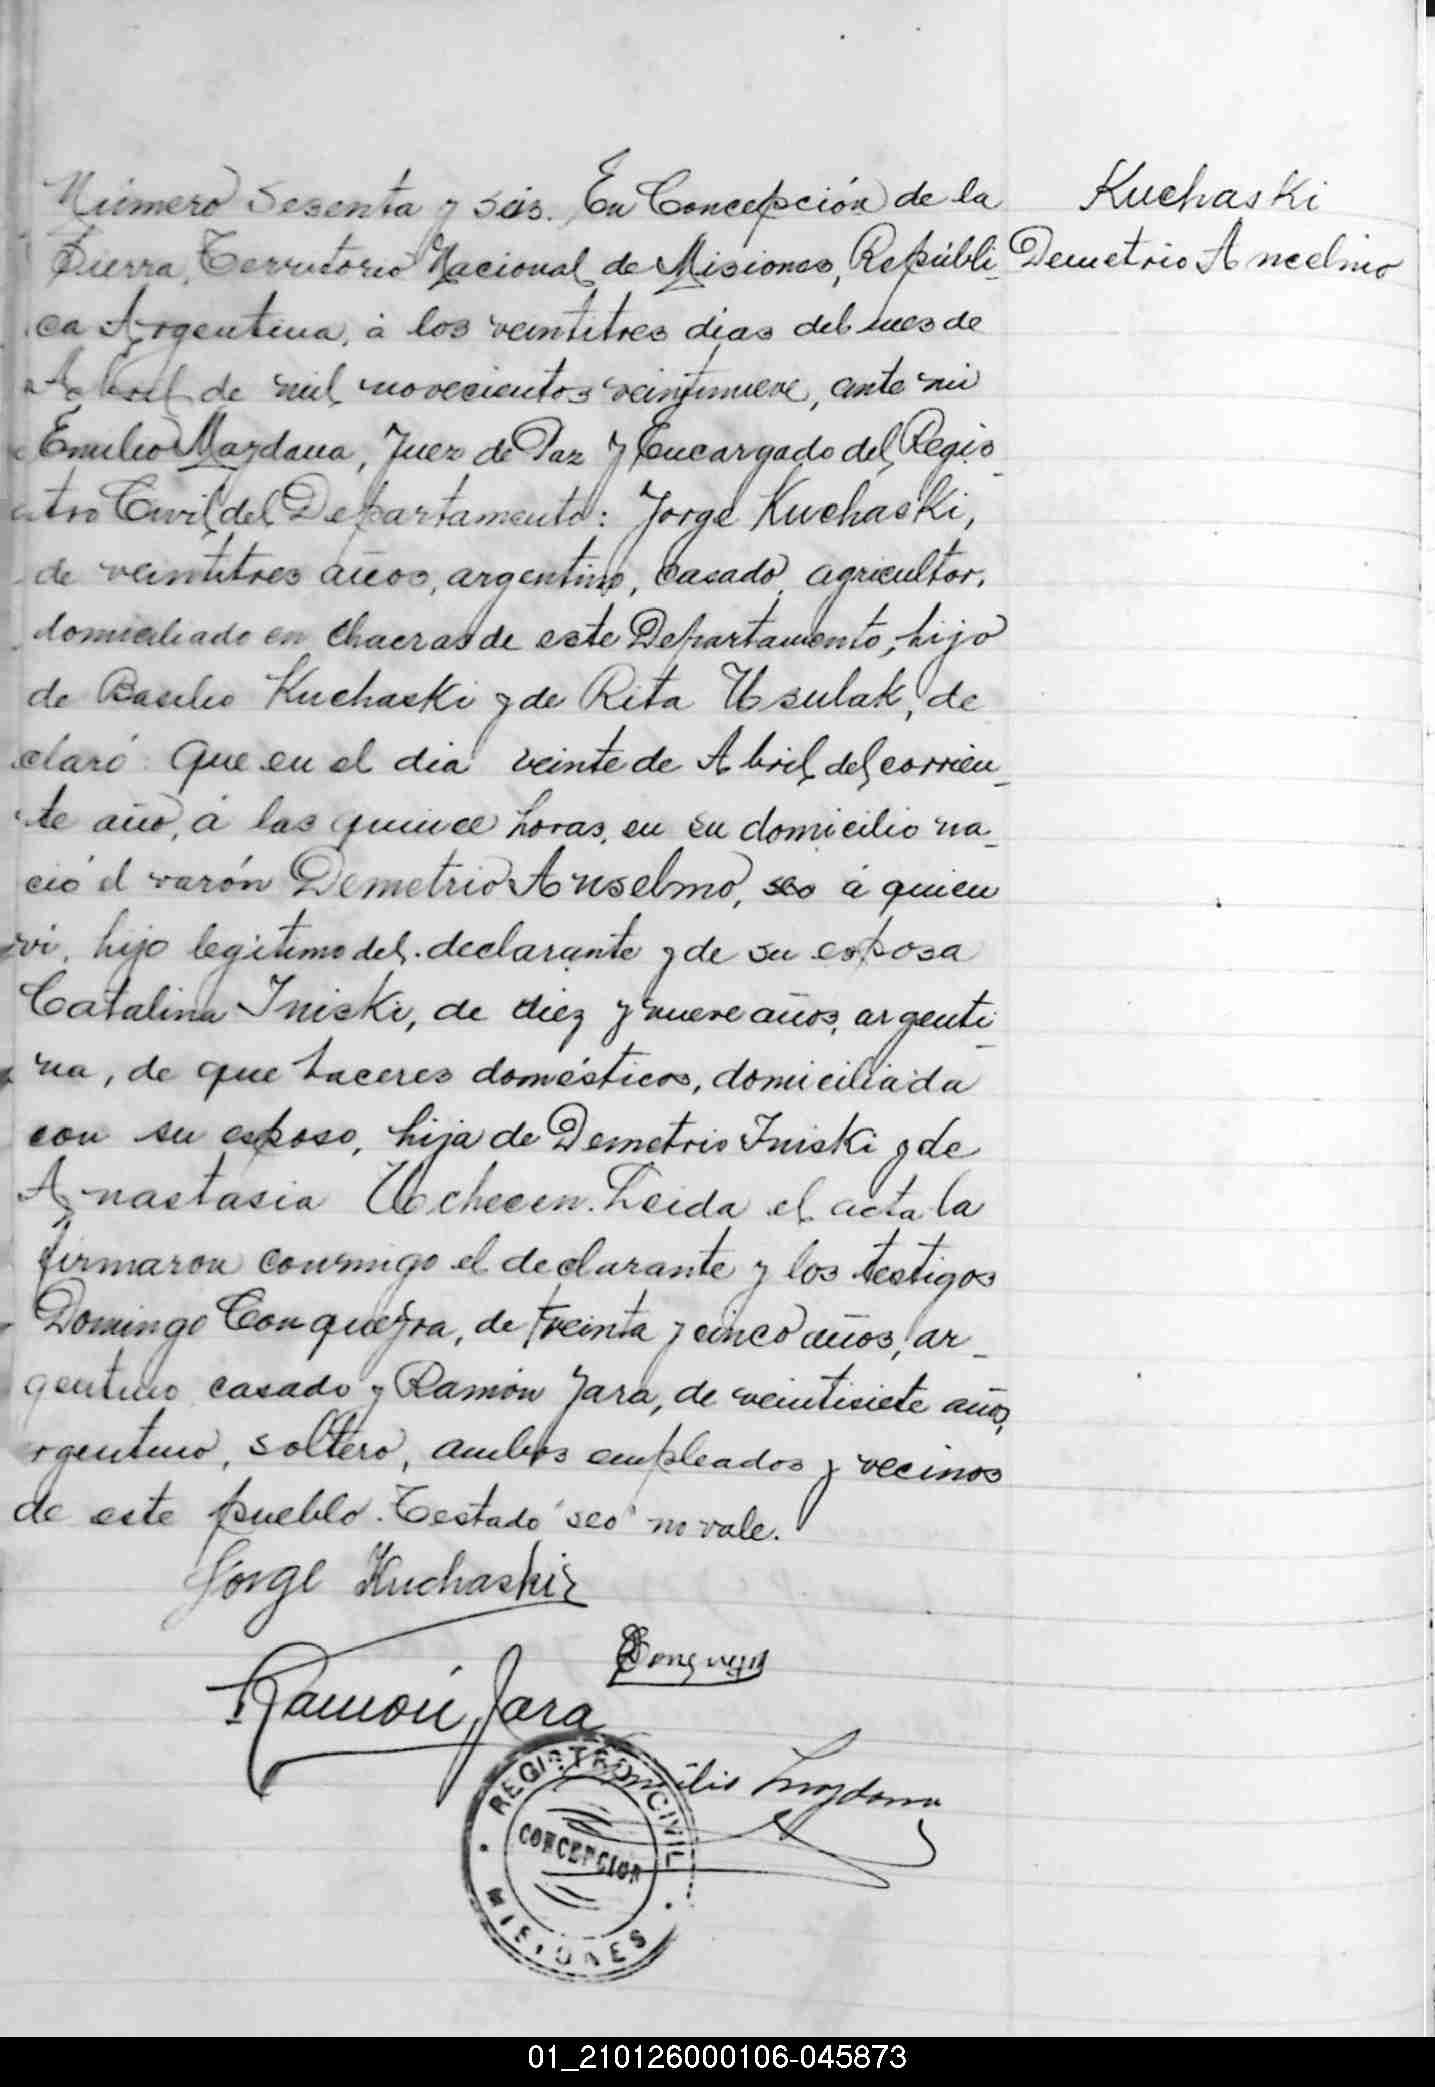 Número Sesenta y seis. En Concepción de la
Sierra, Territorio Nacional de Misiones, Repúbli-
ca Argentina, á los veintitres dias del mes de
Abril de mil novecientos veintinueve, ante mi
Emilio Maydana, Juez de Paz y Encargado del Regis-
tro Civil del Departamento: Jorge Kuchaski,
de veintitres años, argentino, casado, agricultor,
domiciliado en chacras de este Departamento, hijo
de Basilio Kuchaski y de Rita Usulak, de
claró: Que en el dia veinte de Abril del corrien-
te año, á las quince horas, en su domicilio na-
ció el varón Demetrio Anselmo, seo á quien
vi, hijo legitimo del declarante y de su esposa
Catalina Iniski, de diez y nueve años, argenti-
na, de que haceres domésticos, domiciliada
con su esposo, hija de Demetrio Iniski y de
Anastasia Leida el acta la
firmaron conmigo el declarante y los testigos
Domingo Conqueyra, de treinta y cinco años, ar-
gentino casado y Ramón Jara, de veintisiete años,
argentino, soltero, ambos empleados y vecinos
de este pueblo. Testado "seo" no vale.
Kuchaski
Demetrio Ancelmo
Jorge Kuchaski
Ramón Jara
Emilio Maydana
REGISTRO CIVIL
CONCEPCION
MISIONES
01_210126000106-045873